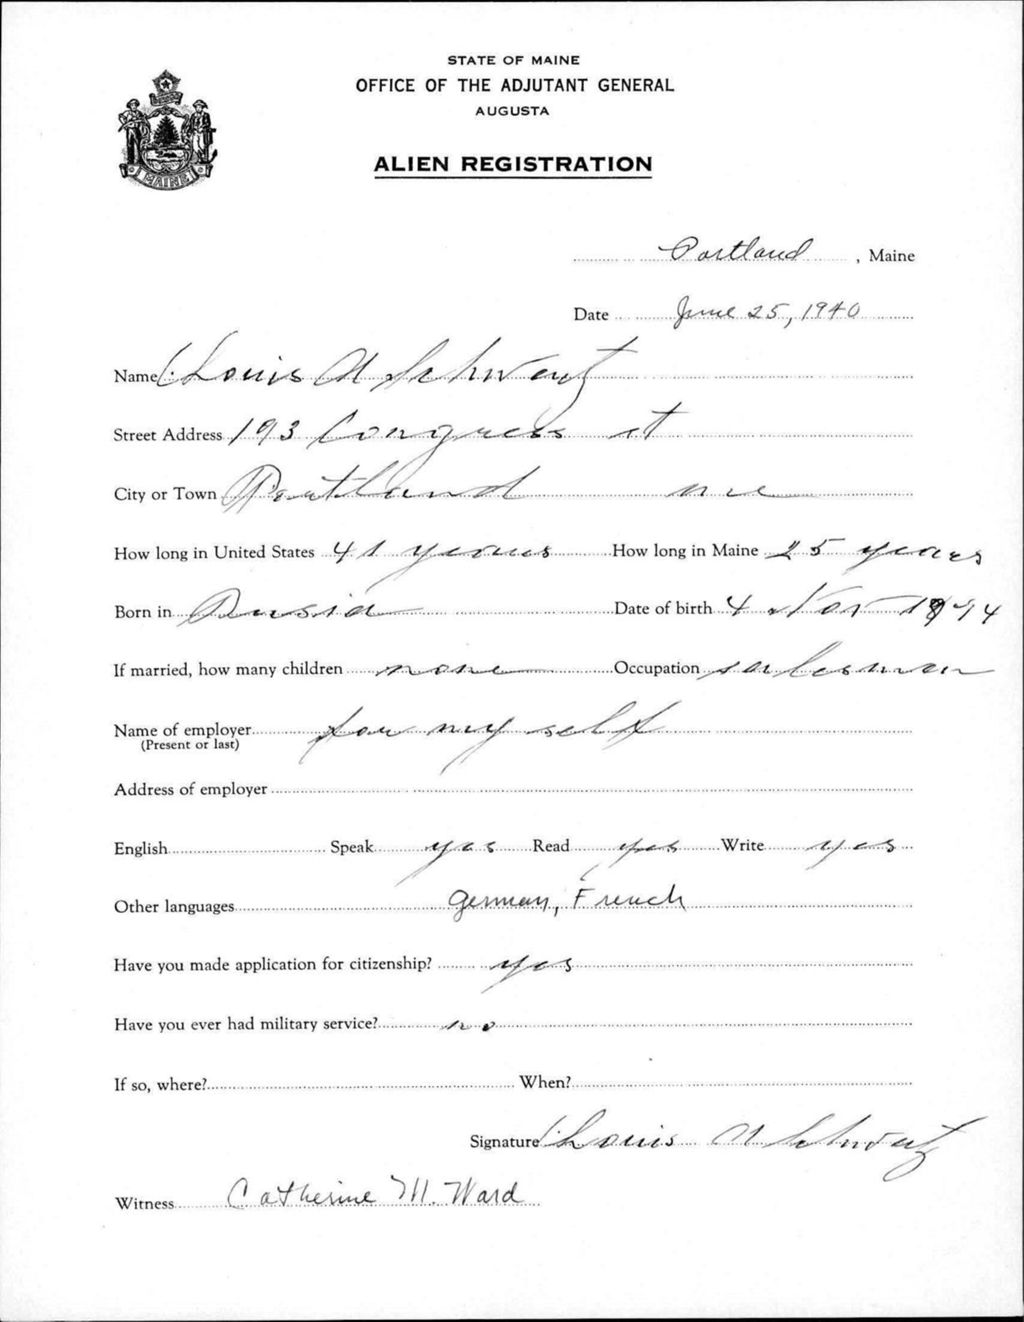 STATE OF MAINE
OFFICE OF THE ADJUTANT GENERAL
AUGUSTA
ALIEN REGISTRATION
MAINE
Portland, Maine
Date June 25, 1940
Name Louis Schwartz
Street Address 193 Congress st
City or Town Portland me
How long in United States 41 years How long in Maine 25 years
Born in Rusia Date of birth 4 Nov 1894
If married, how many children none Occupation salesman
Name of employer for my self
(Present or last)
Address of employer
English Speak yes Read yes Write yes
Other languages German, French
Have you made application for citizenship? yes
Have you ever had military service? no
If so, where? When?
Signature Louis Schwartz
Witness Catherine M. Ward